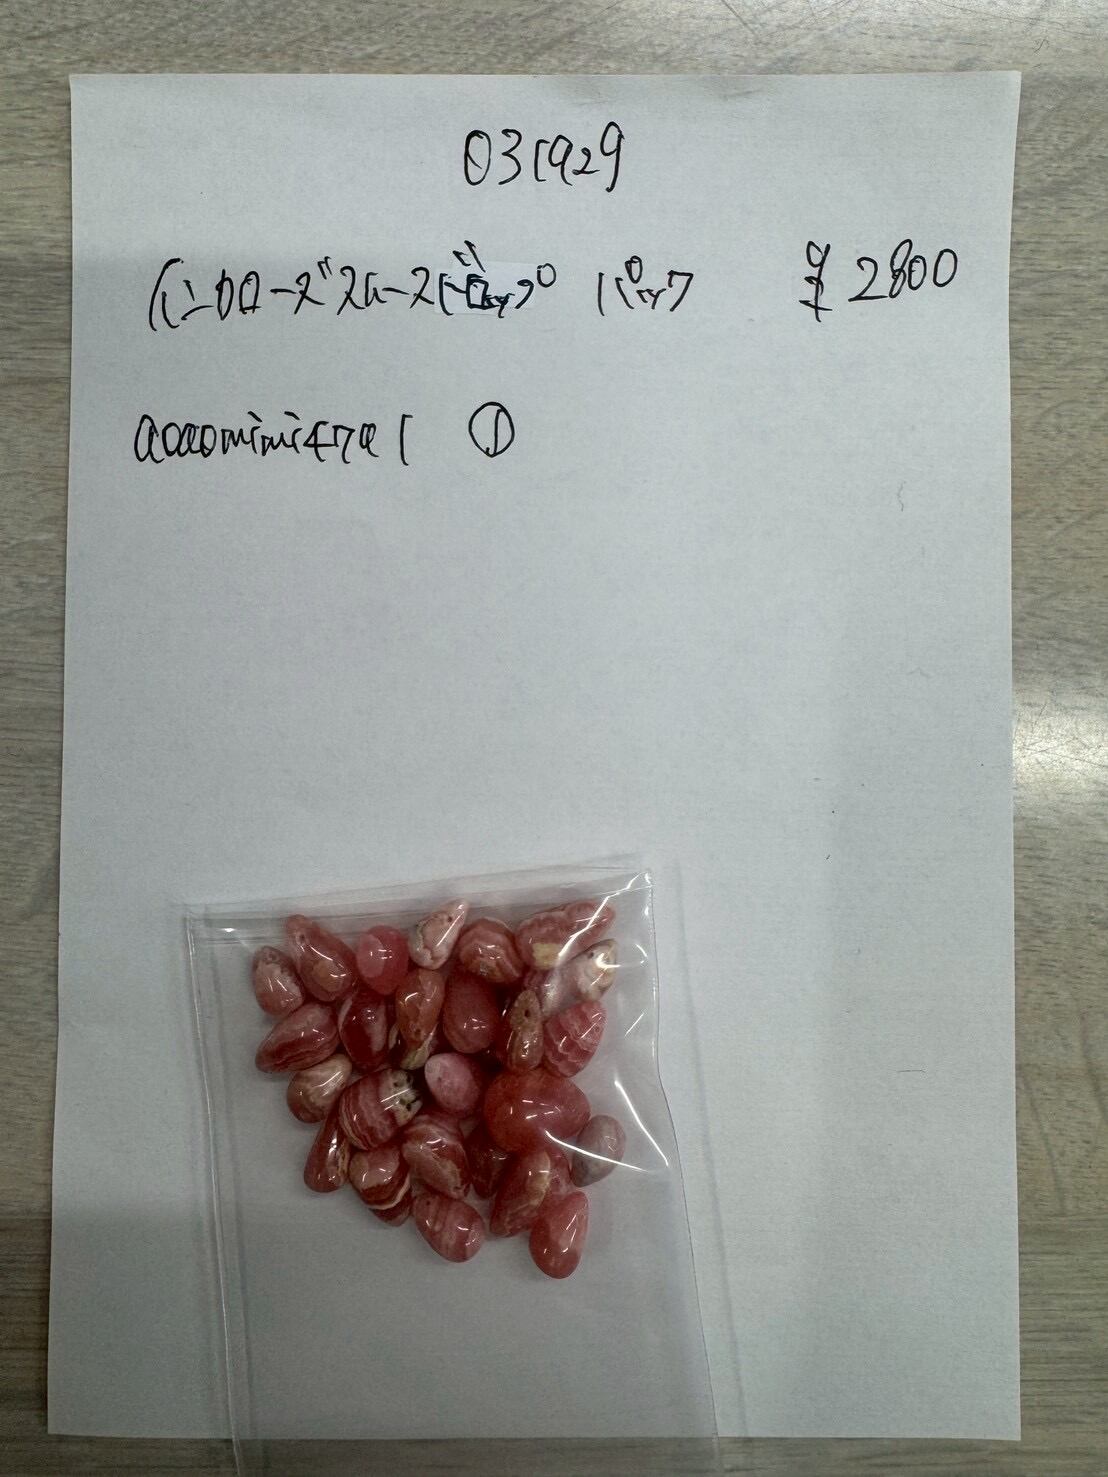 031929
インカローズルースドロップ パック ¥2800
①